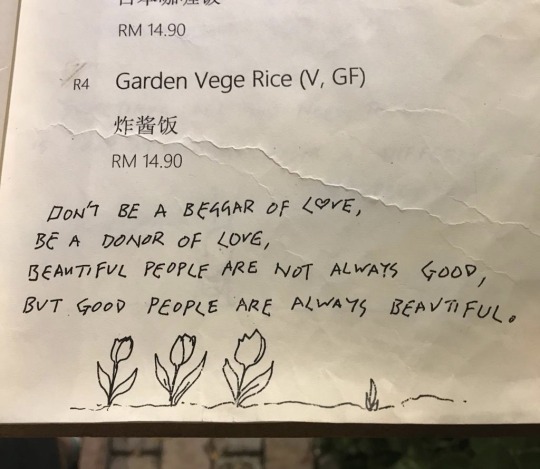 RM 14.90
R4 Garden Vege Rice (V, GF)
炸酱饭
RM 14.90
DON'T BE A BEGGAR OF L♡VE,
BE A DONOR OF LOVE,
BEAUTIFUL PEOPLE ARE NOT ALWAYS GOOD,
BUT GOOD PEOPLE ARE ALWAYS BEAUTIFUL.